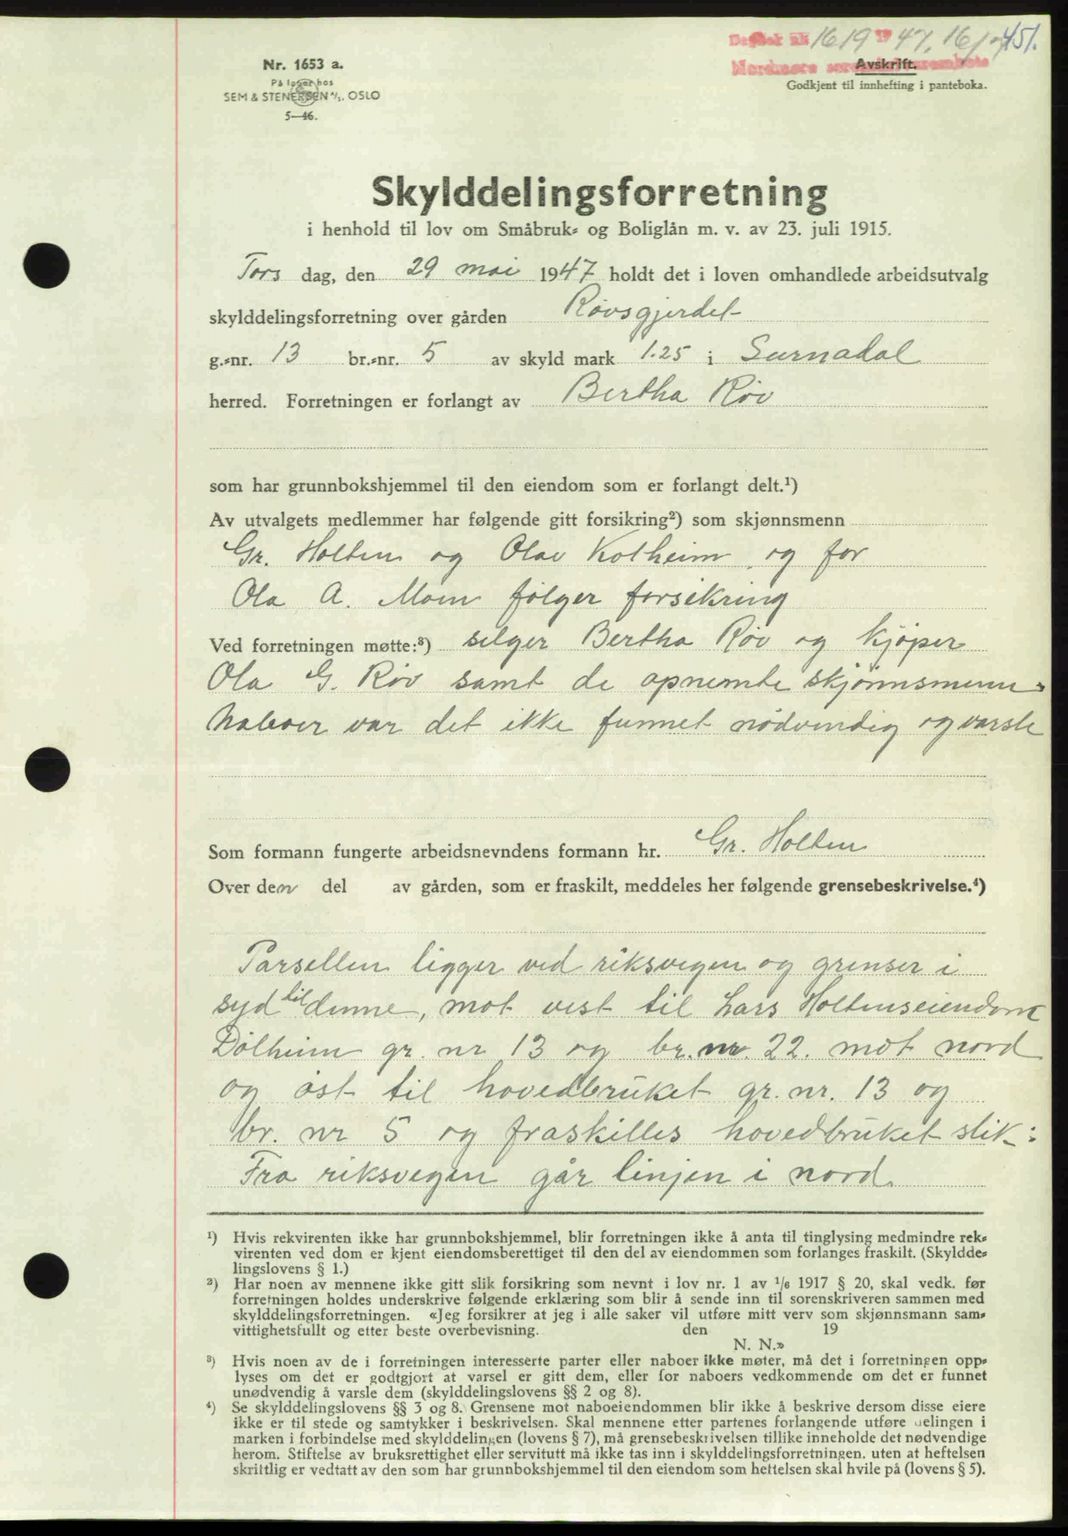 Dagbok nr. 1619 1947, 16/7 451.
Nordmøre sorenskriverembete
Avskrift.
Godkjent til innhefting i panteboka.
Nr. 1653 a.
På lager hos
SEM & STENERSEN A/S. OSLO
5—46.
Skylddelingsforretning
i henhold til lov om Småbruk- og Boliglån m. v. av 23. juli 1915.
Tors dag, den 29 mai 1947 holdt det i loven omhandlede arbeidsutvalg
skylddelingsforretning over gården Røvsgjerdet
g.-nr. 13 br.-nr. 5 av skyld mark 1.25 i Surnadal
herred. Forretningen er forlangt av Bertha Røv
som har grunnbokshjemmel til den eiendom som er forlangt delt.¹)
Av utvalgets medlemmer har følgende gitt forsikring²) som skjønnsmenn
Gr. Holten og Olav Kotheim og for
Ola A. Moen følger forsikring
Ved forretningen møtte:³) selger Bertha Røv og kjøper
Ola G. Røv samt de opnemte skjønnsmenn.
Naboer var det ikke funnet nødvendig og varsle
Som formann fungerte arbeidsnevndens formann hr. Gr. Holten
Over den del av gården, som er fraskilt, meddeles her følgende grensebeskrivelse.⁴)
Parsellen ligger ved riksvegen og grenser i
syd til denne, mot vest til Lars Holtenseiendom
Dølheim gr. nr 13 og br. nr. 22. mot nord
og øst til hovedbruket gr. nr. 13 og
br. nr 5 og fraskilles hovedbruket slik:
Fra riksvegen går linjen i nord
¹) Hvis rekvirenten ikke har grunnbokshjemmel, blir forretningen ikke å anta til tinglysing medmindre rek-
virenten ved dom er kjent eiendomsberettiget til den del av eiendommen som forlanges fraskilt. (Skyldde-
lingslovens § 1.)
²) Har noen av mennene ikke gitt slik forsikring som nevnt i lov nr. 1 av 1/6 1917 § 20, skal vedk. før
forretningen holdes underskrive følgende erklæring som blir å sende inn til sorenskriveren sammen med
skylddelingsforretningen. «Jeg forsikrer at jeg i alle saker vil utføre mitt verv som skjønnsmann sam-
vittighetsfullt og etter beste overbevisning. den 19
N. N.»
³) Hvis noen av de i forretningen interesserte parter eller naboer ikke møter, må det i forretningen opp-
lyses om det er godtgjort at varsel er gitt dem, eller for naboers vedkommende om det er funnet
unødvendig å varsle dem (skylddelingslovens §§ 2 og 8).
⁴) Se skylddelingslovens §§ 3 og 8. Grensene mot naboeiendommen blir ikke å beskrive dersom disse eiere
ikke er til stede og samtykker i beskrivelsen. Skal mennene etter partenes forlangende utføre delingen i
marken i forbindelse med skylddelingen (lovens § 7), må grensebeskrivelsen tillike inneholde det nødvendige
herom. Stiftelse av bruksrettighet eller servitutt må ikke tas inn i skylddelingsforretningen, uten at heftelsen
skriftlig er vedtatt av den som har grunnbokshjemmel til den eiendom som heftelsen skal hvile på (lovens § 5).